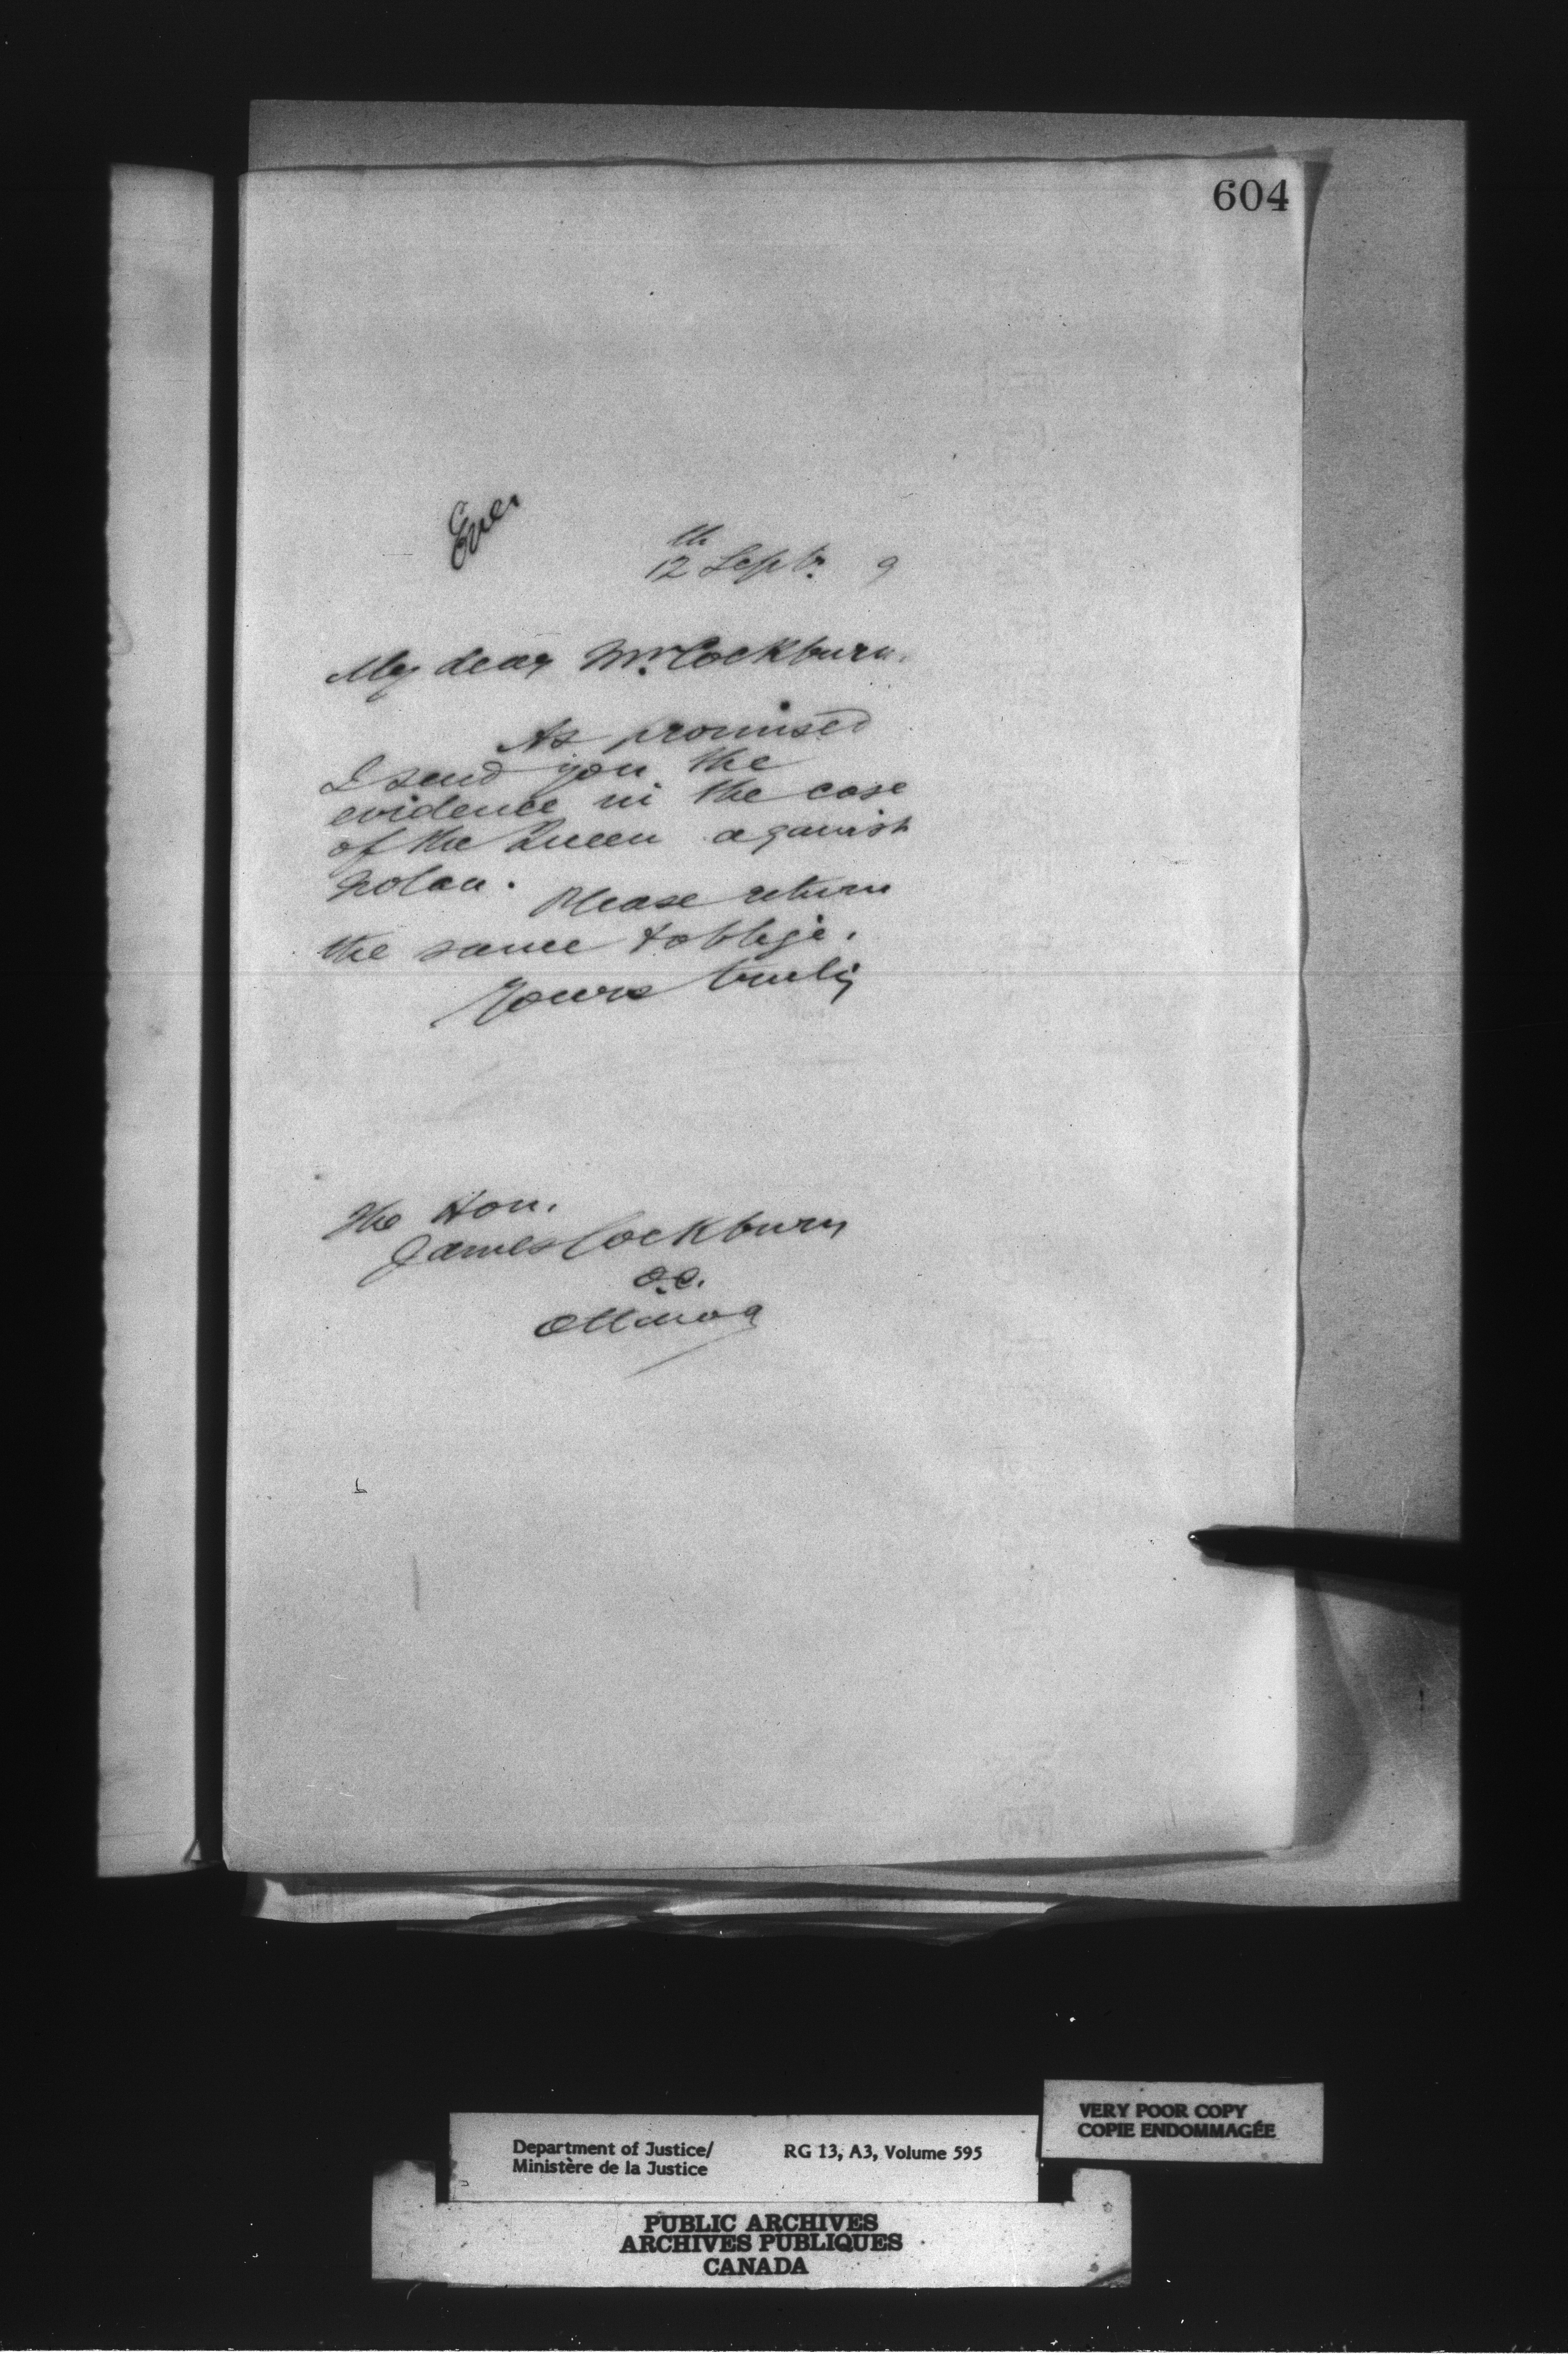 604
Ence
12th Septr. 9
My dear Mr. Cockburn.
As promised
I send you the
evidence in the case
of the Queen against
Nolan.
Please return
the same & oblige.
Yours truly
The Hon.
James Cockburn
Q.C.
Ottawa
VERY POOR COPY
COPIE ENDOMMAGÉE
Department of Justice/ RG 13, A3, Volume 595
Ministère de la Justice
PUBLIC ARCHIVES
ARCHIVES PUBLIQUES
CANADA